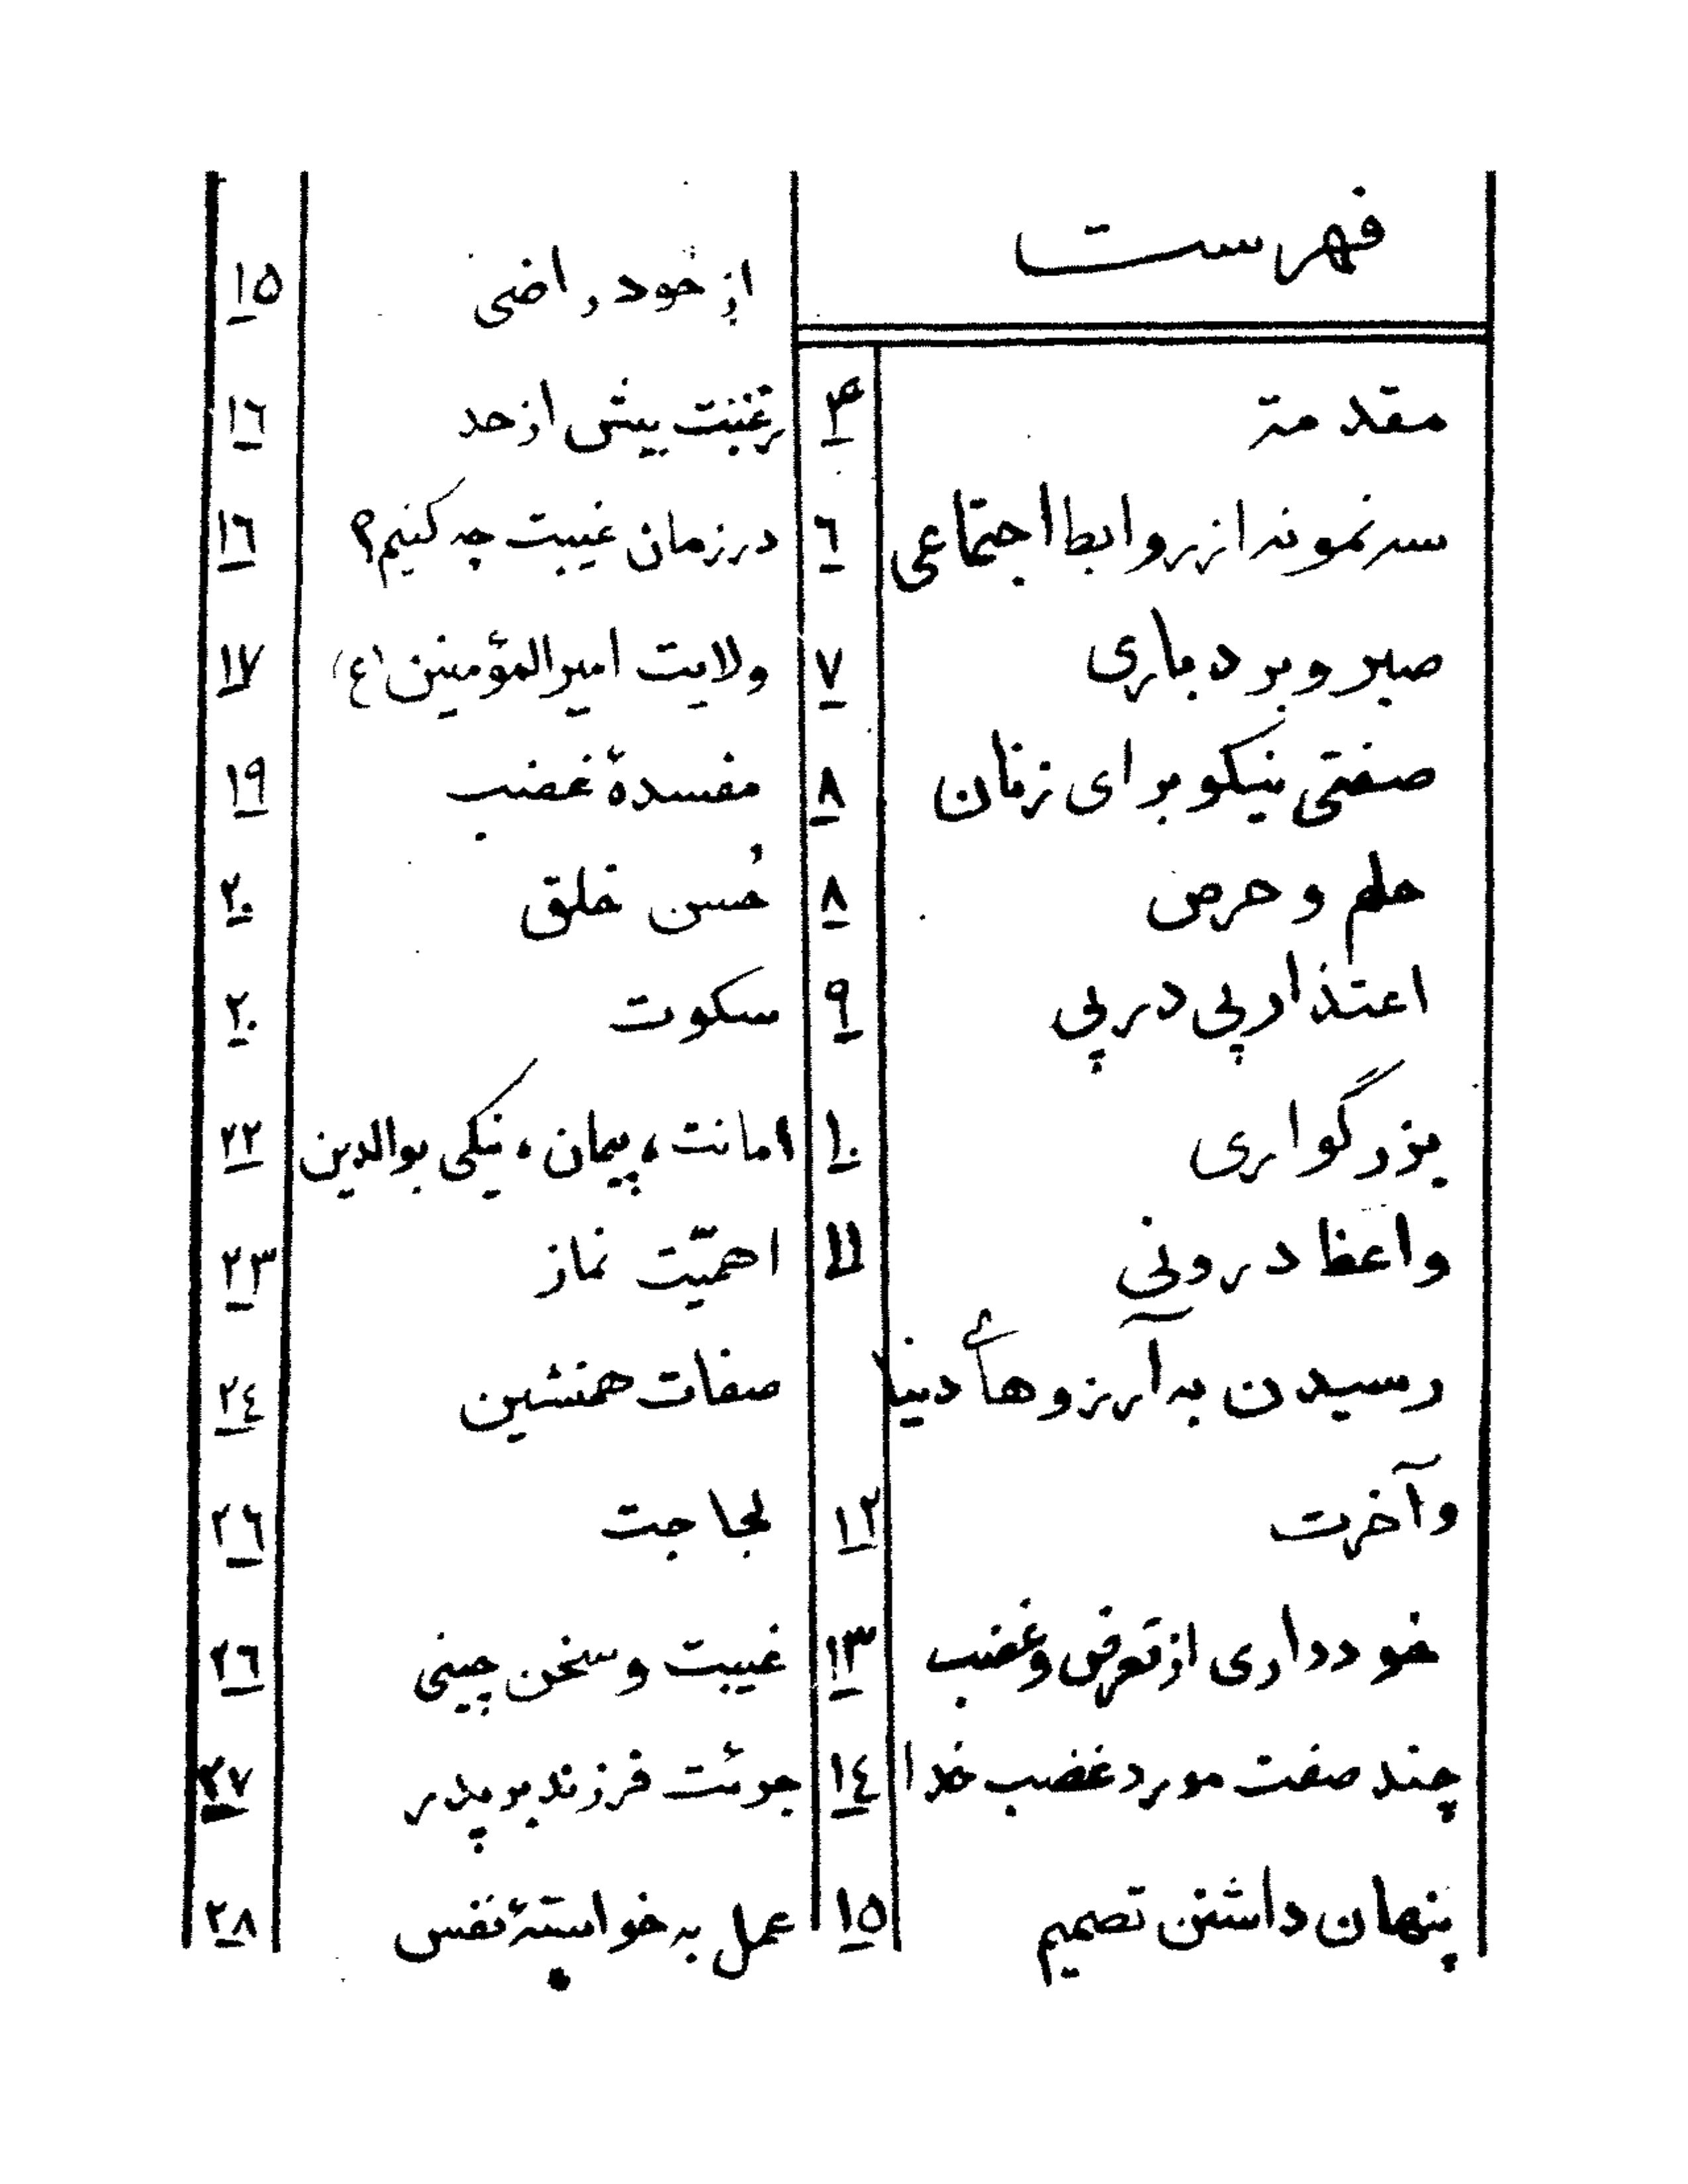 فهرست
مقدمة ٣
سه نمونه از روابط اجتماعی ٦
صبر و بردباری ٧
صفتی نیکو برای زنان ٨
حلم و حرص ٨
اعتذار پی در پی ٩
بزرگواری ١٠
واعظ درونی ١١
رسیدن به آرزوهای دنیا
و آخرت ١٢
خودداری از تعرض و غضب ١٣
چند صفت مورد غضب خدا ١٤
پنهان داشتن تصمیم ١۵
از خود راضی ١۵
رغبت بیش از حد ١٦
در زمان غیبت چه کنیم؟ ١٦
ولایت امیرالمؤمنین (ع) ١٧
مفسدهٔ غضب ١٩
حُسن خلق ٢٠
سکوت ٢٠
امانت، پیمان، نیکی بوالدین ٢٢
اهمیّت نماز ٢٣
صفات همنشین ٢٤
لجاجت ٢٦
غیبت و سخن چینی ٢٦
جرئت فرزند بر پدر ٢٧
عمل به خواستهٔ نفس ٢٨